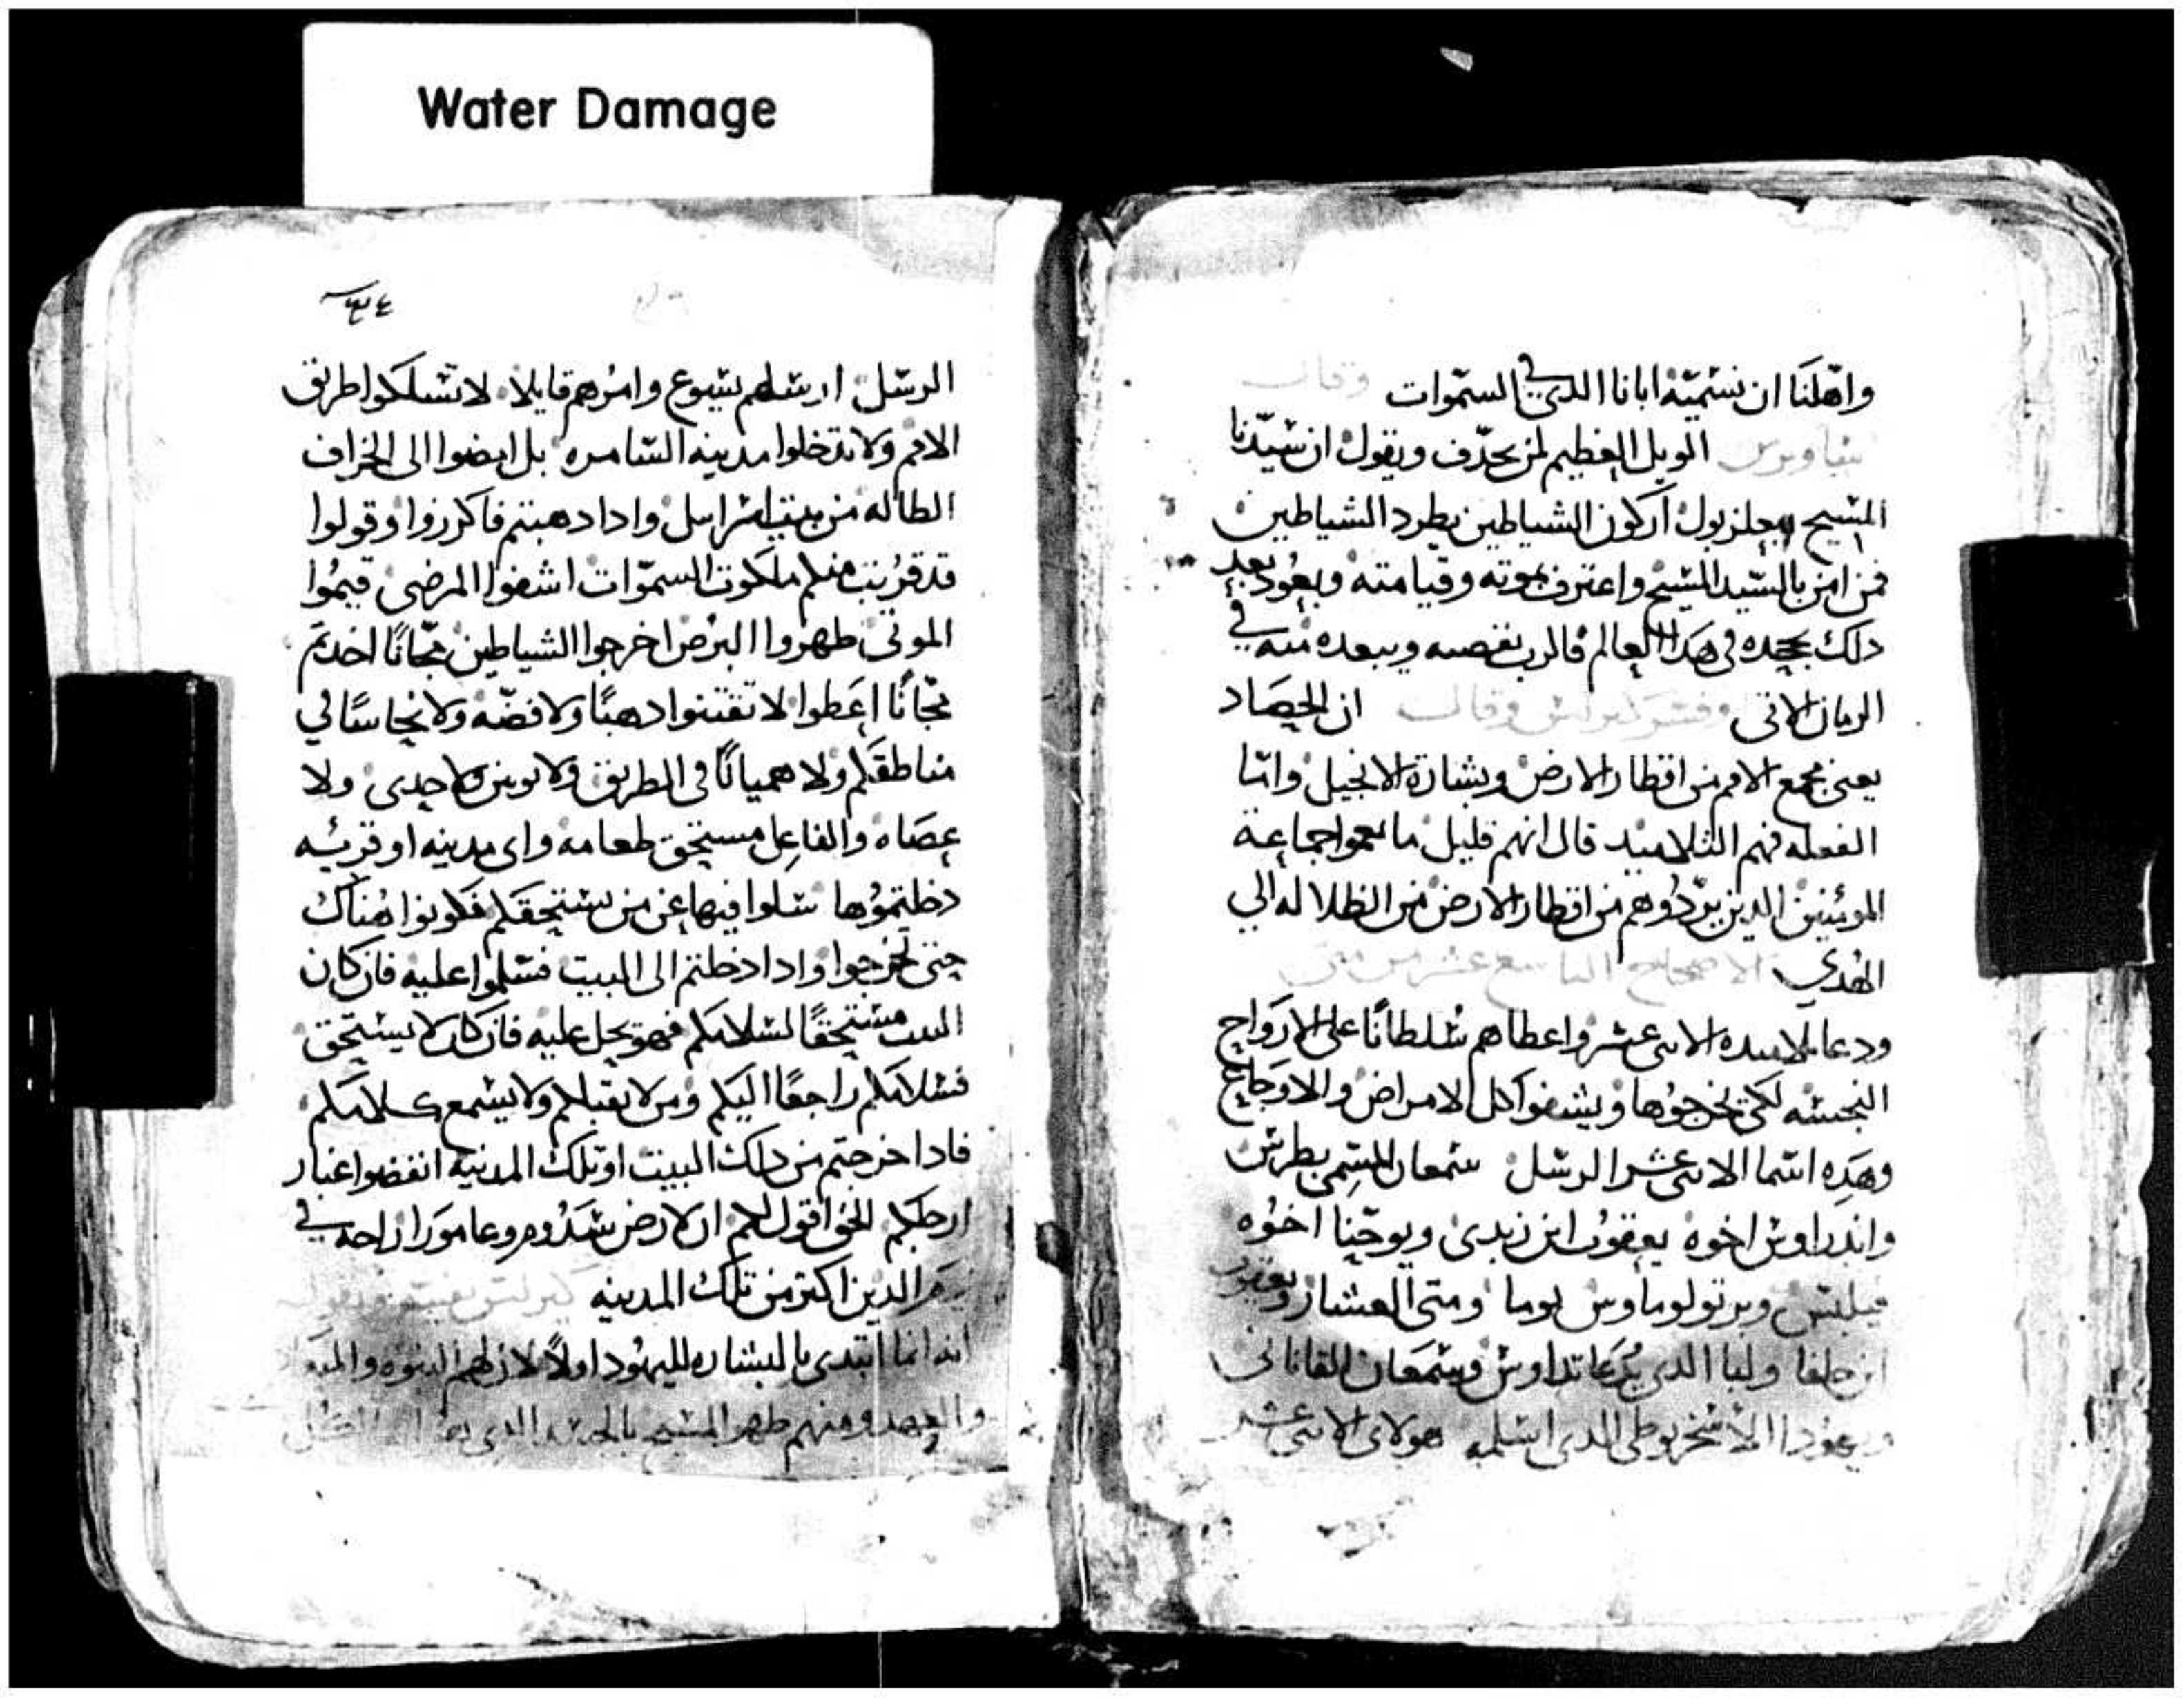 Water Damage
واهلنا ان نسميه ابانا الدي في السموات وقال
ساويرس الويل العظيم لمن يجدف ويقول ان سيدنا
المسيح ببعلزبول اركون الشياطين يطرد الشياطين
فمن امن بالسيد المسيح واعترف بموته وقيامته ويعود بعد
دلك يجحده في هدا العالم فالرب يقصيه ويبعده منه في
الزمان الاتي وفسر كيرلس وقال ان الحصاد
يعني مجمع الامم من اقطار الارض وبشارة الانجيل واما
الفعله فهم التلاميد قال انهم قليل ما يعموا جماعة
المومنين الدين يردوهم من اقطار الارض من الظلاله الي
الهدي الاصحاح التاسع عشر من متى
ودعا تلاميده الاتني عشر واعطاهم سلطانًا على الارواح
النجسه لكي يخرجوها ويشفوا كل الامراض والاوجاع
وهده اسما الاتني عشر الرسل سمعان المسمى بطرس
واندراوس اخوه يعقوب ابن زبدى ويوحنا اخوه
فيلبس وبرتولوماوس توما ومتى العشار ويعقوب
ابن حلفا ولبا الدي يدعا تداوس وسمعان القاناني
ويهودا الاسخريوطي الدي اسلمه هولاي الاتني عشر
الرسل ارسلهم يسوع وامرهم قايلا لا تسلكوا طريق
الامم ولا تدخلوا مدينه السامره بل امضوا الى الخراف
الظاله من بيت اسراييل وادا دهبتم فاكرزوا وقولوا
قد قربت منكم ملكوت السموات اشفوا المرضى قيموا
الموتى طهروا البرص اخرجوا الشياطين مجانًا اخدتم
مجانًا اعطوا لا تقتنوا دهبًا ولا فضه ولا نحاسًا في
مناطقكم ولا هميانًا في الطريق ولا توبين ولا حدى ولا
عصاه والفاعل مستحق طعامه واى مدينه او قريه
دخلتموها سلوا فيها عن من يستحقكم فكونوا هناك
حتى تخرجوا وادا دخلتم الى البيت فسلموا عليه فان كان
البيت مستحقًا لسلامكم فهو يحل عليه فان كان لا يستحق
فسلامكم راجعًا اليكم ومن لا يقبلكم ولا يسمع كلامكم
فادا خرجتم من دلك البيت او تلك المدينه انفضوا غبار
ارجلكم الحق اقول لكم ان لارض سدوم وعامورا راحه في
يوم الدين اكتر من تلك المدينه كيرلس يفسر ويقول
انه انما ابتدى بالبشاره لليهود اولاً لان لهم النبوه
والعهد ومنهم ظهر المسيح بالجسد الدي